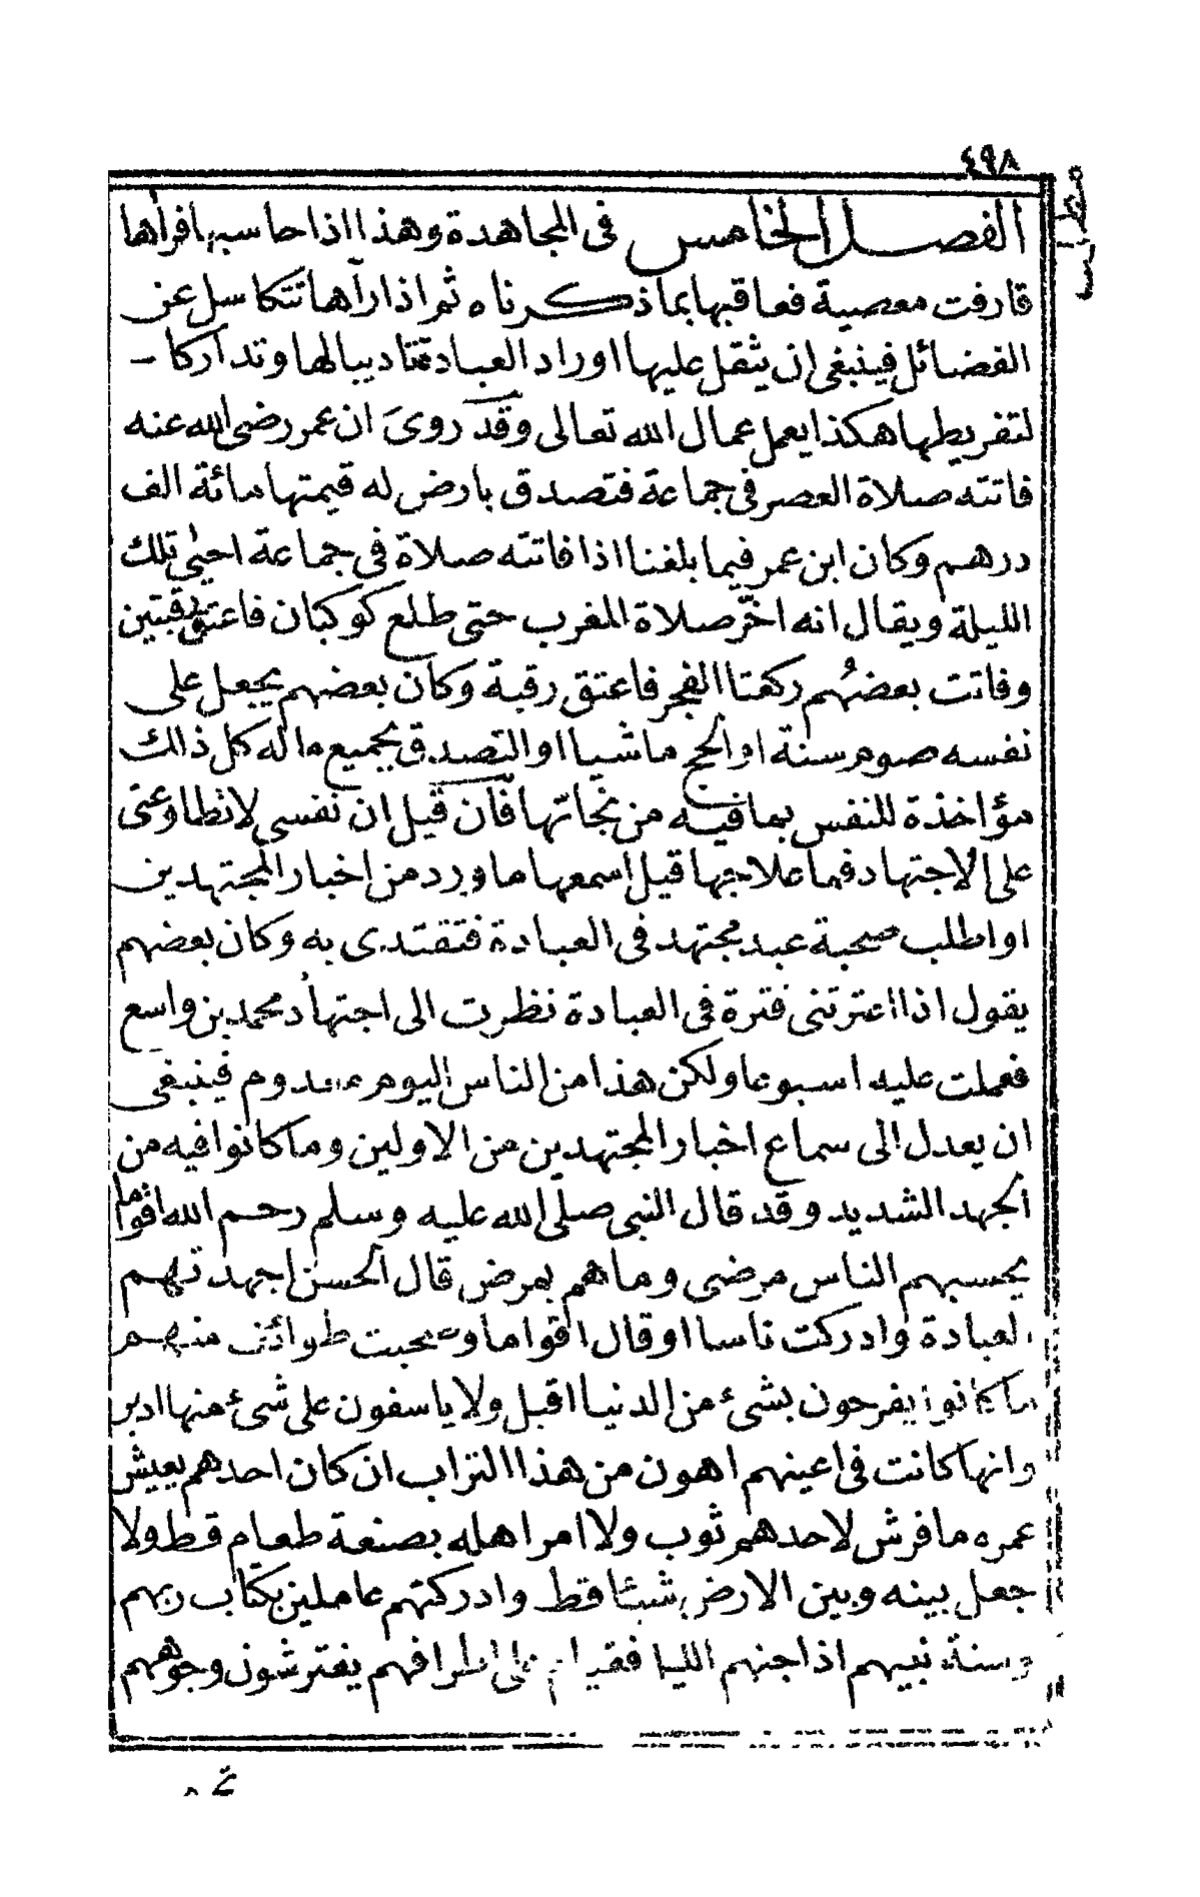 ٤٩٨
الفصل الخامس في المجاهدة وهذا اذا حاسبها فراها
قارفت معصية فعاقبها بما ذكرناه ثم اذا رآها تتكاسل عن
الفضائل فينبغي ان يثقل عليها اوراد العبادة تاديبا لها وتداركا
لتفريطها هكذا يعمل عمال الله تعالى وقد روى ان عمر رضي الله عنه
فاتته صلاة العصر في جماعة فتصدق بارض له قيمتها مائة الف
درهم وكان ابن عمر فيما بلغنا اذا فاتته صلاة في جماعة احيى تلك
الليلة ويقال انه اخّر صلاة المغرب حتى طلع كوكبان فاعتق رقبتين
وفاتت بعضهُم ركعتا الفجر فاعتق رقبة وكان بعضهم يجعل على
نفسه صوم سنة او الحج ماشيا او التصدق بجميع ماله كل ذلك
مؤاخذة للنفس بما فيه من نجاتها فان قيل ان نفسي لا تطاوعني
على الاجتهاد فما علاجها قيل اسمعها ما ورد من اخبار المجتهدين
او اطلب صحبة عبد مجتهد في العبادة فتقتدى به وكان بعضهم
يقول اذا اعترتني فترة في العبادة نظرت الى اجتهاد محمد بن واسع
فعملت عليه اسبوعا ولكن هذا من الناس اليوم معدوم فينبغي
ان يعدل الى سماع اخبار المجتهدين من الاولين وما كانوا فيه من
الجهد الشديد وقد قال النبي صلى الله عليه وسلم رحم الله اقواما
يحسبهم الناس مرضى وما هم بمرض قال الحسن اجهدتهم
العبادة وادركت ناسا او قال اقواما وصحبت طوائف منهم
ما كانوا يفرحون بشئ من الدنيا اقبل ولا ياسفون على شئ منها ادبر
وانها كانت في اعينهم اهون من هذا التراب ان كان احدهم يعيش
عمره ما فرش لاحدهم ثوب ولا امر اهله بصنعة طعام قط ولا
جعل بينه وبين الارض شيئا قط وادركتهم عاملين بكتاب ربهم
وسنة نبيهم اذا جنهم الليل فقيام على اطرافهم يفترشون وجوههم